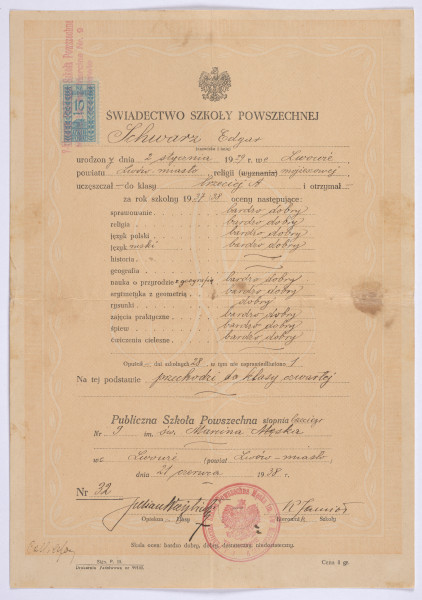 Szkoła Powszechna
15
ŚWIADECTWO SZKOŁY POWSZECHNEJ
Schwarz Edgar
(nazwisko i imię)
urodzony dnia 2 stycznia 1929 r. we Lwowie
powiatu Lwów miasto, religii (wyznania) mojżeszowej,
uczęszczał do klasy trzeciej A i otrzymał
za rok szkolny 1937/38 oceny następujące:
sprawowanie bardzo dobry
religia bardzo dobry
język polski bardzo dobry
język ruski bardzo dobry
historia
geografia
nauka o przyrodzie z geografią bardzo dobry
arytmetyka z geometrią bardzo dobry
rysunki dobry
zajęcia praktyczne bardzo dobry
śpiew bardzo dobry
ćwiczenia cielesne bardzo dobry
Opuścił dni szkolnych 28, w tem nie usprawiedliwiono 1
Na tej podstawie przechodzi do klasy czwartej
Publiczna Szkoła Powszechna stopnia trzeciego
Nr 9 im. św. Marcina Męska
we Lwowie (powiat Lwów-miasto)
dnia 21 czerwca 1938 r.
Nr 32
Opiekun Klasy
Kierownik Szkoły
Skala ocen: bardzo dobry, dobry, dostateczny, niedostateczny.
Cena 4 gr.